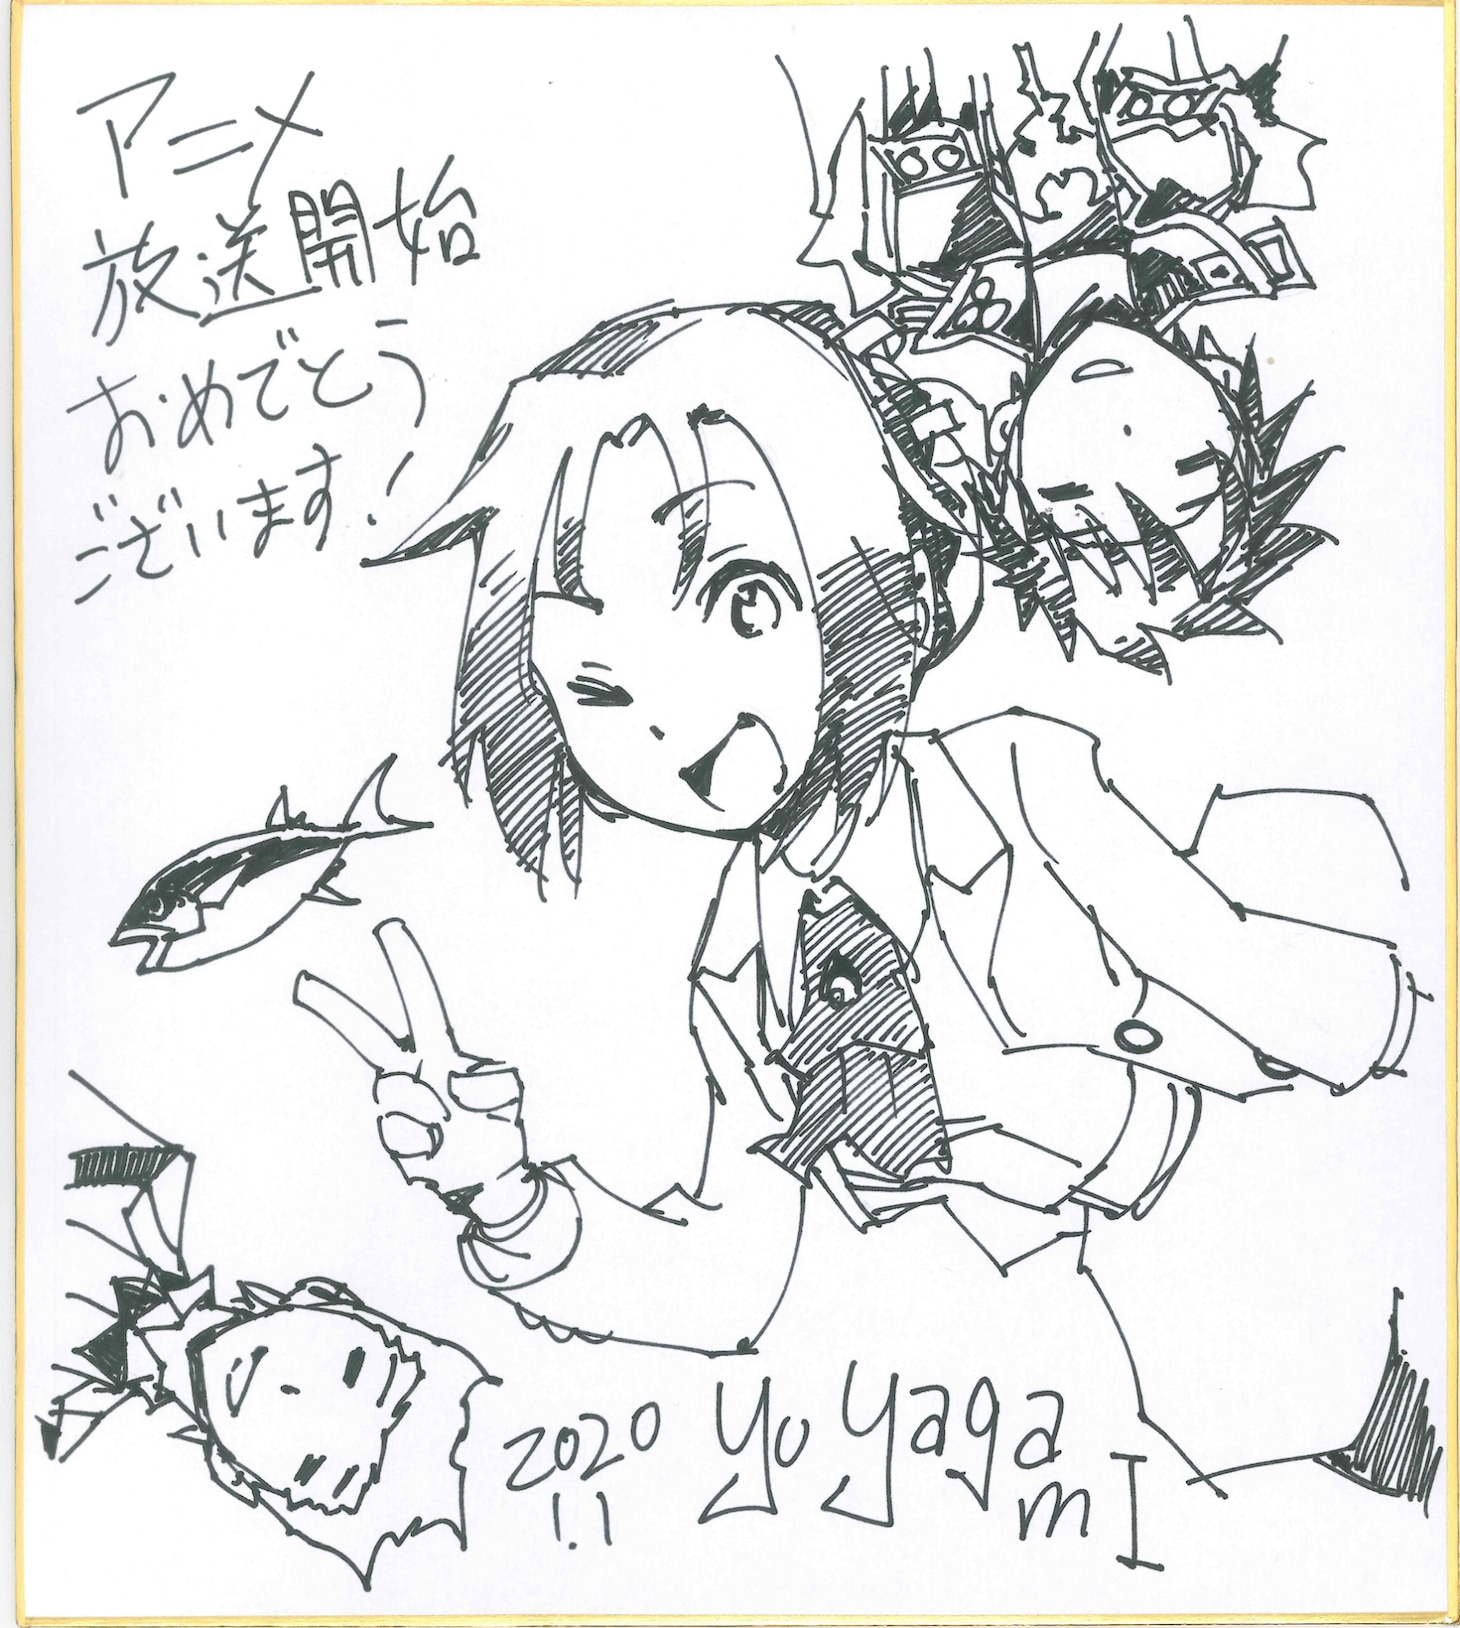 アニメ
放送開始
おめでとう
ございます!
2020
1.1
yo yagamI